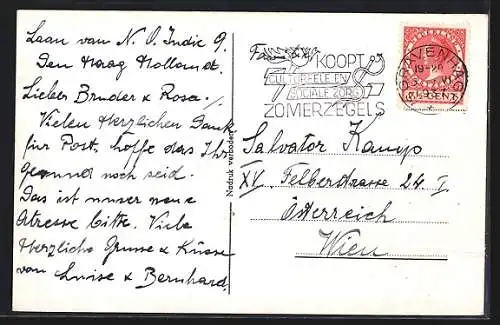 Laan van N. O. Indie 9.
Den Haag Holland.
Lieber Bruder & Rosa!
Vielen Herzlichen Dank
für Post, hoffe das Ihr
gesund noch seid.
Das ist unser neue
Adresse bitte. Viele
Herzliche Grüsse & Küsse
von Luise & Bernhard
Nadruk verboden
KOOPT
CULTUREELE EN
SOCIALE ZORG
ZOMERZEGELS
'S-GRAVENHAGE
CENT
Salvator Kampo
XV. Felberstrasse 24. I
Österreich
Wien